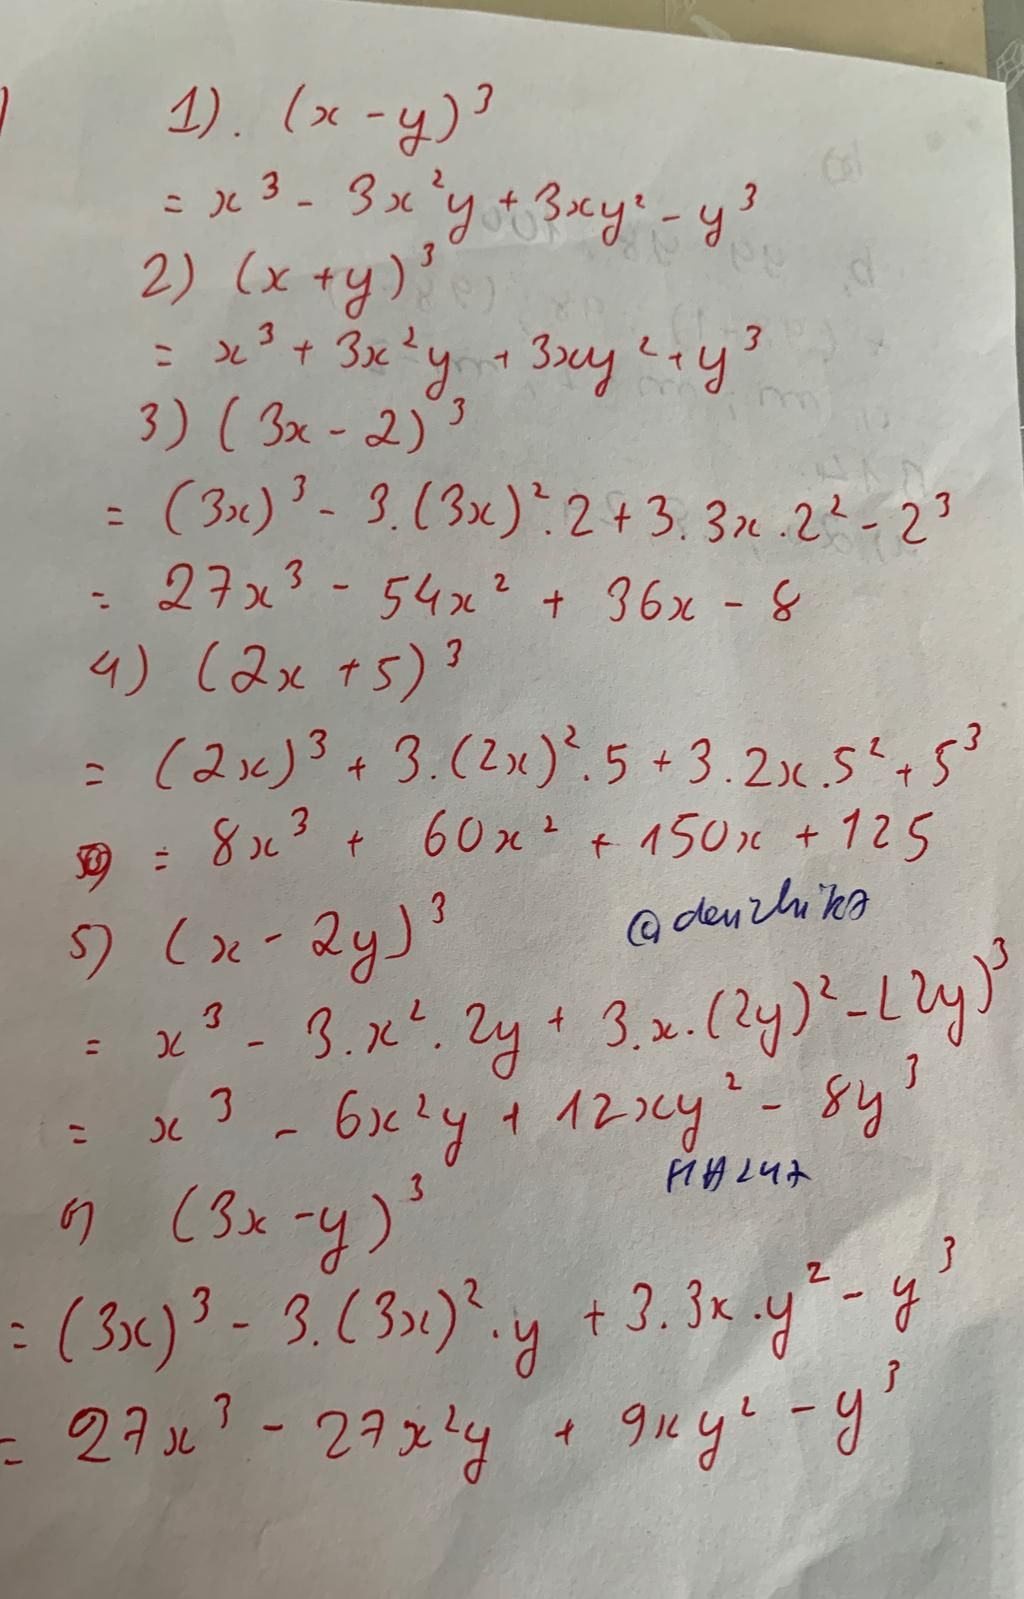 1). (x - y)³
= x³ - 3x²y + 3xy² - y³
2) (x + y)³
= x³ + 3x²y + 3xy² + y³
3) (3x - 2)³
= (3x)³ - 3.(3x)².2 + 3.3x.2² - 2³
= 27x³ - 54x² + 36x - 8
4) (2x + 5)³
= (2x)³ + 3.(2x)².5 + 3.2x.5² + 5³
= 8x³ + 60x² + 150x + 125
5) (x - 2y)³
= x³ - 3.x².2y + 3.x.(2y)² - (2y)³
= x³ - 6x²y + 12xy² - 8y³
6) (3x - y)³
= (3x)³ - 3.(3x)².y + 3.3x.y² - y³
= 27x³ - 27x²y + 9xy² - y³